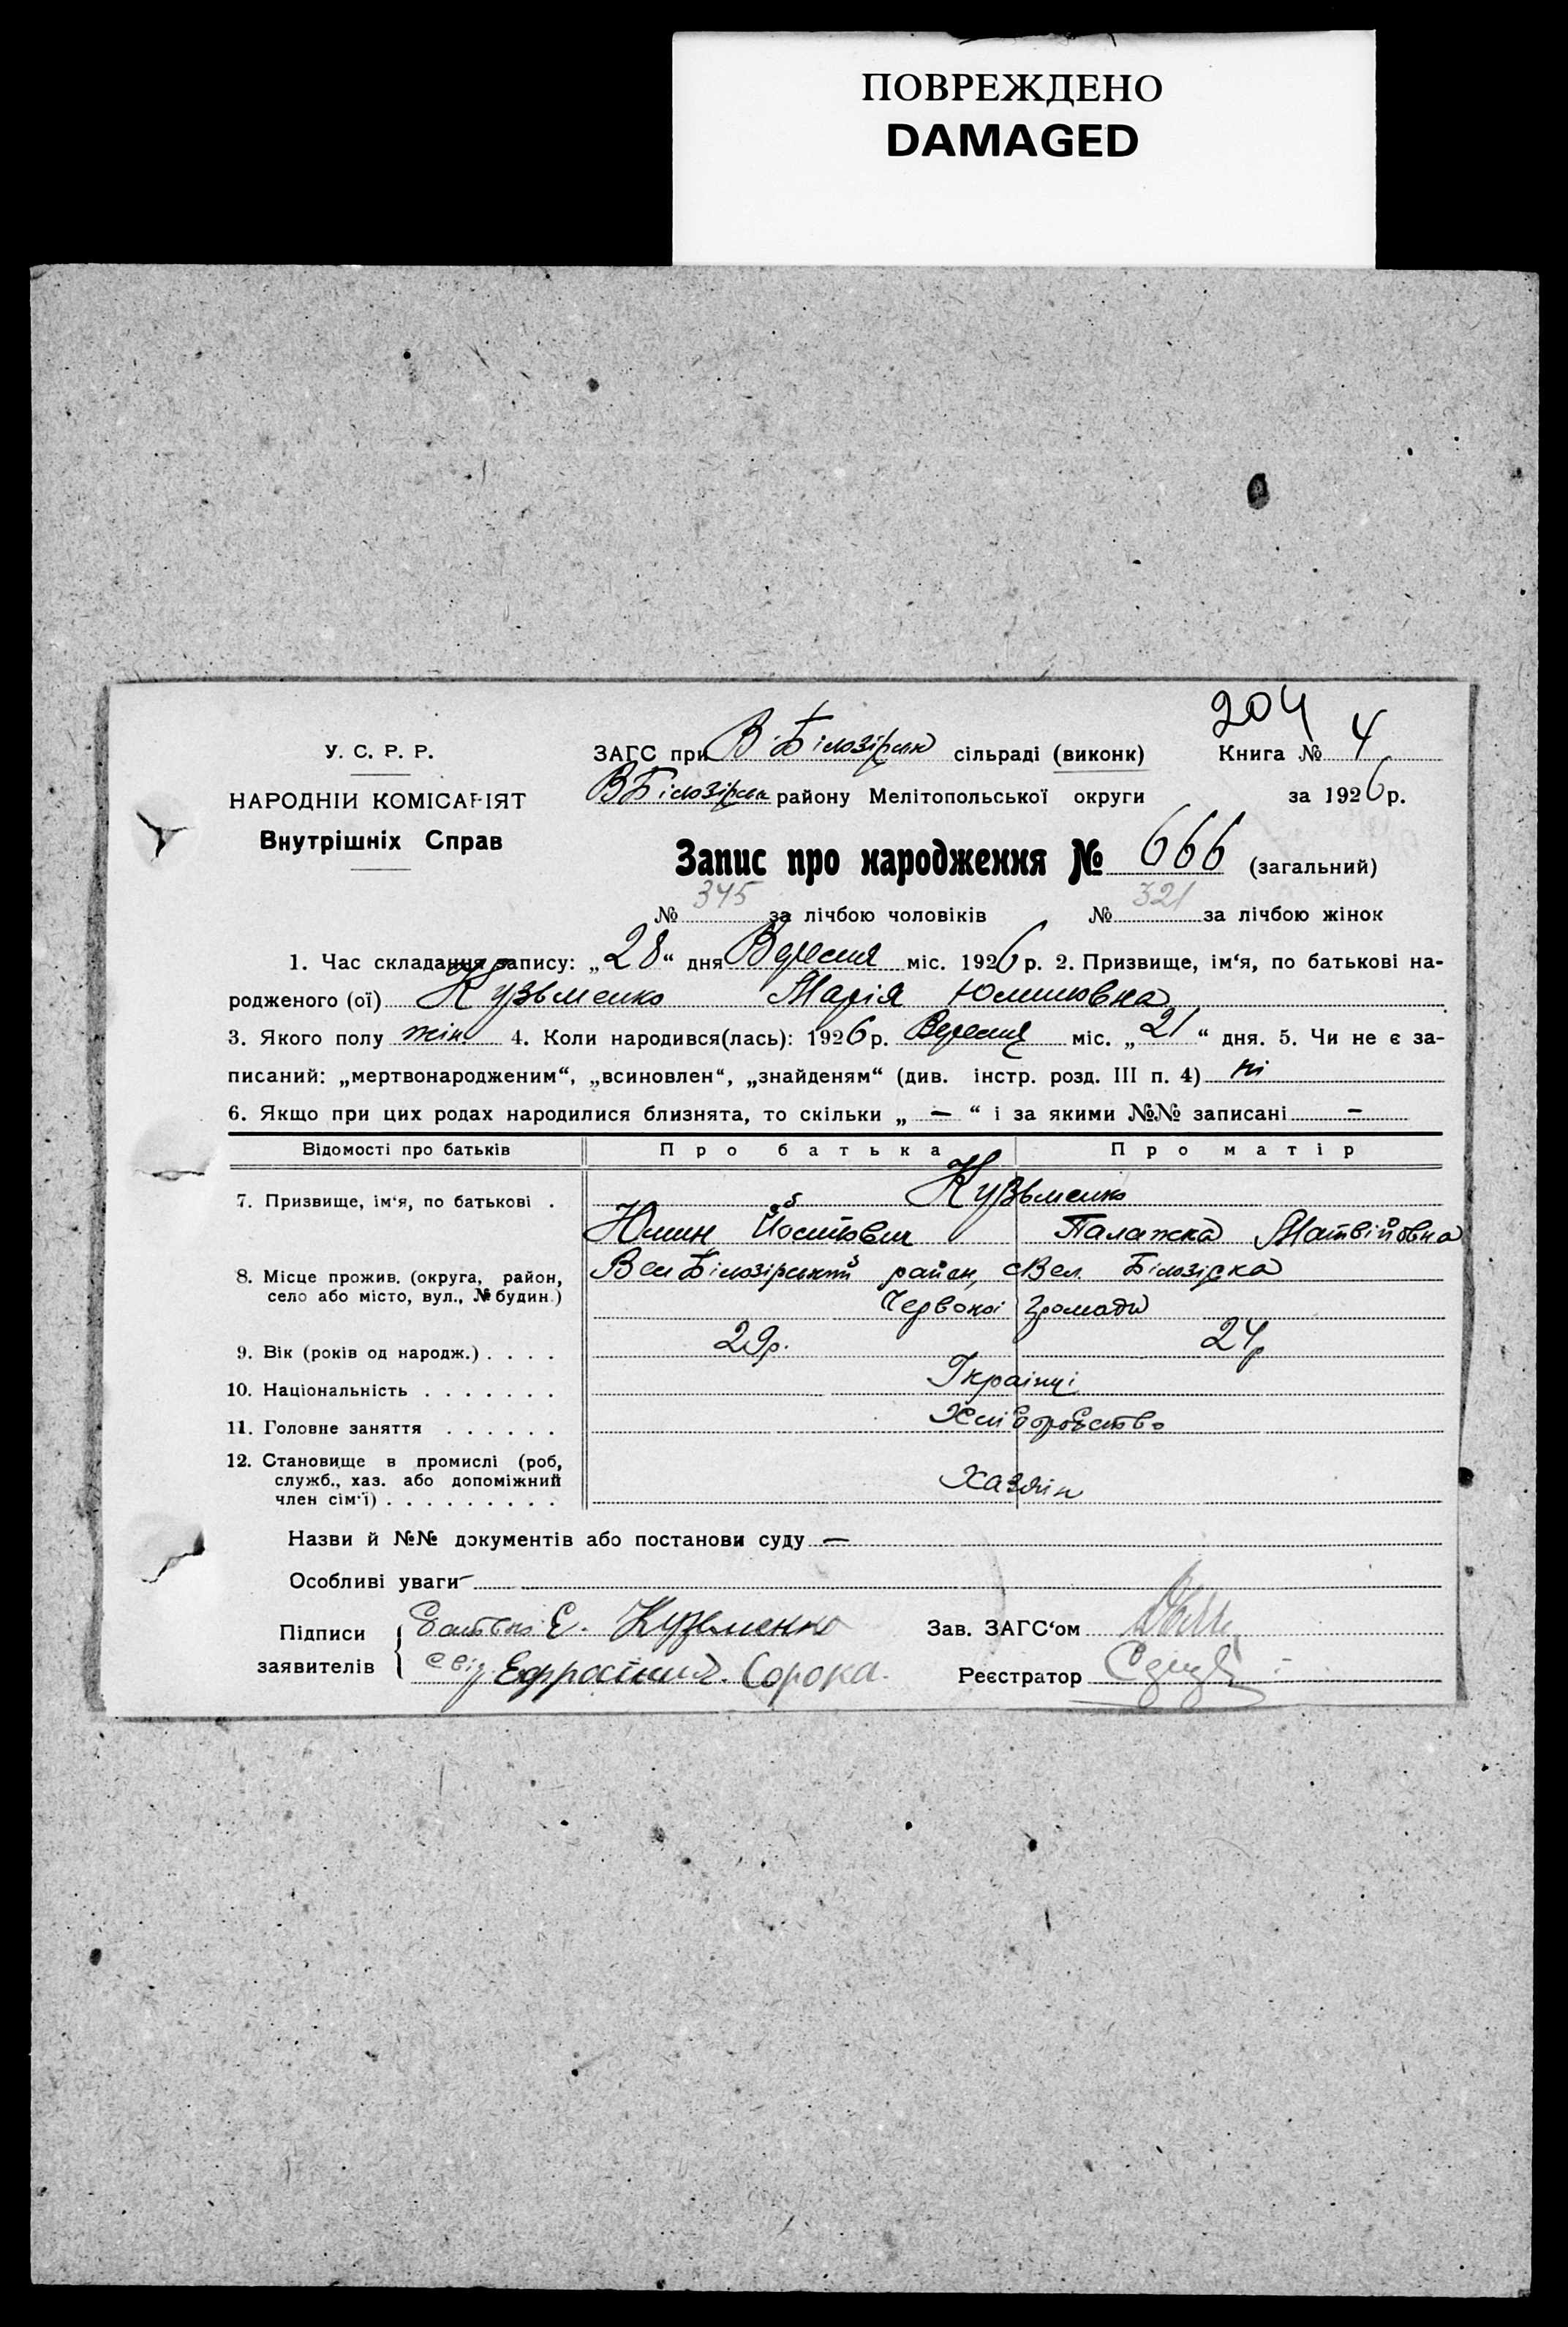 ПОВРЕЖДЕНО
DAMAGED
204
У. С. Р. Р.
ЗАГС при В-Білозірськ сільраді (виконк) Книга № 4
НАРОДНІЙ КОМІСАРІЯТ
В Білозірськ району Мелітопольської округи за 1926 р.
Внутрішніх Справ
Запис про народження № 666 (загальний)
№ 345 за лічбою чоловіків № 321 за лічбою жінок
1. Час складання запису: „28“ дня Вересня міс. 1926 р. 2. Призвище, ім'я, по батькові на-
родженого (ої) Кузьменко Марія
3. Якого полу жін. 4. Коли народився(лась): 1926 р. Вересня міс. „21“ дня. 5. Чи не є за-
писаний: „мертвонародженим“, „всиновлен“, „знайденям“ (див. інстр. розд. III п. 4) ні
6. Якщо при цих родах народилися близнята, то скільки „ — “ і за якими №№ записані —
Відомості про батьків Про батька Про матір
7. Призвище, ім'я, по батькові . Кузьменко
Палажка Матвійовна
8. Місце прожив. (округа, район, Вел Білозірський район, с Вел. Білозірка
село або місто, вул., № будин.)
Червоної Громади
9. Вік (років од народж.) . . . . 29р. 24р
10. Національність . . . . . . . Українці
11. Головне заняття . . . . . . Хліборобство
12. Становище в промислі (роб,
служб., хаз. або допоміжний
член сім'ї) . . . . . . . . . Хазяїн
Назви й №№ документів або постанови суду —
Особливі уваги —
Підписи
заявителів
батько Е. Кузьменко
свід Ефросіния Сорока.
Зав. ЗАГС'ом
Реєстратор